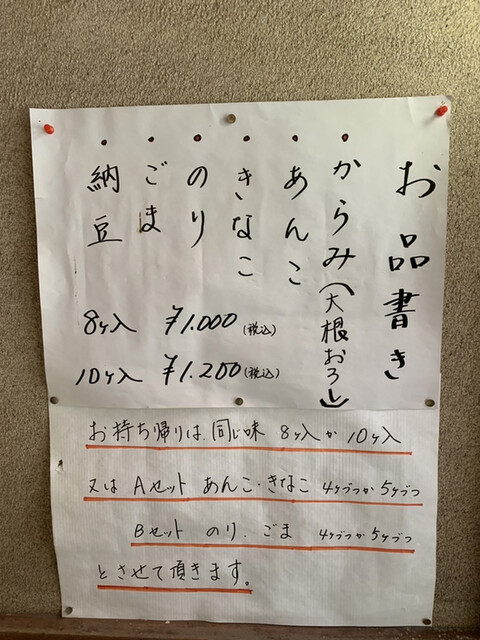 お品書き
・からみ(大根おろし)
・あんこ
・きなこ
・のり
・ごま
・納豆
8ヶ入 ¥1.000(税込)
10ヶ入 ¥1.200(税込)
お持ち帰りは、同じ味 8ヶ入か10ヶ入
又は Aセット あんこ・きなこ 4ヶづつか5ヶづつ
Bセット のり、ごま 4ヶづつか5ヶづつ
とさせて頂きます。